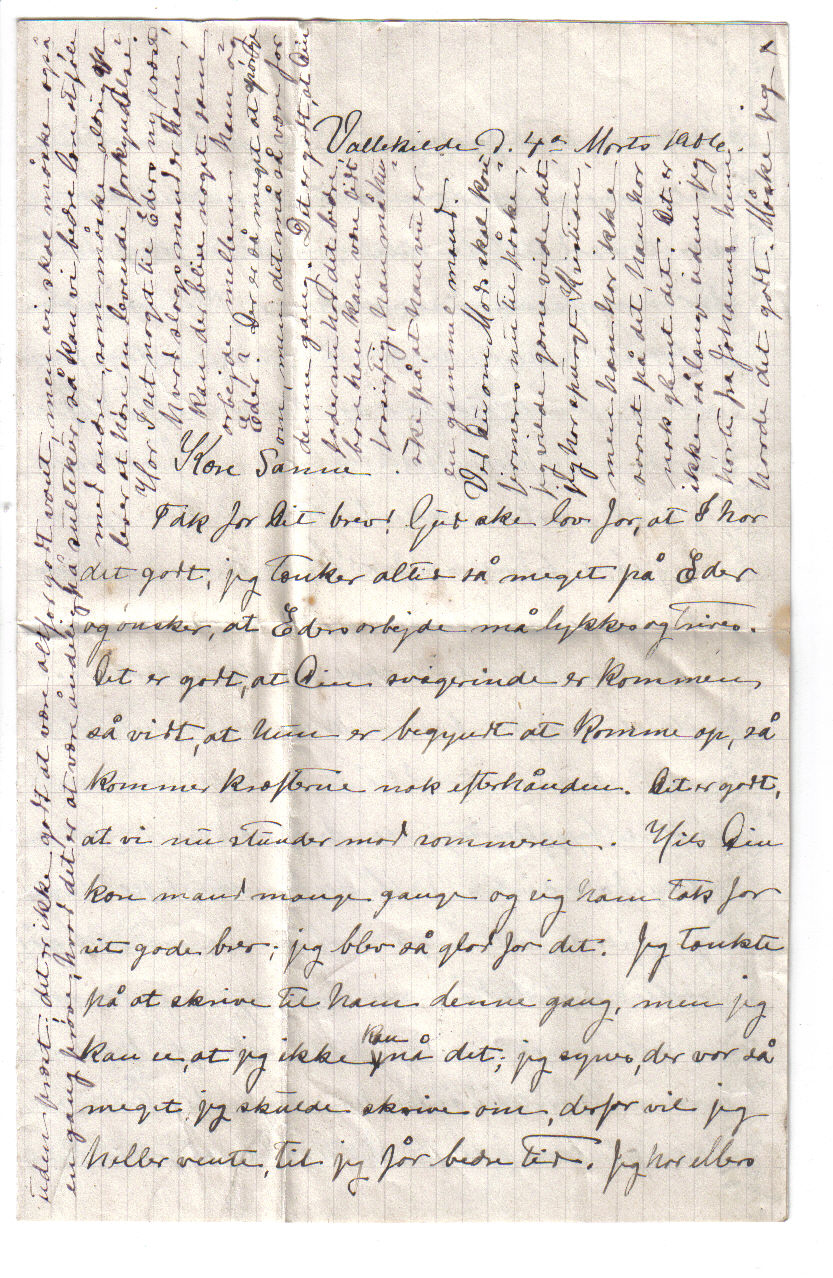 Vallekilde d. 4de Marts 1906.
Kære Sanne.
Tak for Dit brev! Gud ske lov for, at I har
det godt, jeg tænker altid så meget på Eder
og ønsker, at Eders arbejde må lykkes og trives.
Det er godt, at Din svigerinde er kommen
så vidt, at hun er begyndt at komme op, så
kommer kræfterne nok efterhånden. Det er godt,
at vi nu stunder mod sommeren. Hils Din
kære mand mange gange og sig ham tak for
sit gode brev; jeg blev så glad for det. Jeg tænkte
på at skrive til ham denne gang, men jeg
kan se, at jeg ikke kan nå det; jeg synes, der var så
meget, jeg skulde skrive om, derfor vil jeg
heller vente, til jeg får bedre tid. Jeg har ellers
uden præst; det er ikke godt at være alt for godt vant, men vi skal måske også
en gang prøve, hvad det er at være åndelig på sultekur, så kan vi bedre lære at føle
med andre, som måske aldrig op
lever at høre en levende forkyndelse.
Har I set noget til Eders ny præst,
hvad slags mand er han,
kan der blive noget som
arbejde mellem ham og
Eder? Der er så meget at spørge
om, men dit må så være for
denne gang. Det er godt, at Din
fader nu har det bedre,
bare han kan være lidt
forsigtig, han må hu
ske på, at han nu er
en gammel mand.
Ved Du om Mads skal kon
firmeres nu til påske,
jeg vilde gerne vide det,
jeg har spurgt Kristian,
men han har ikke
svaret på det, han har
nok glemt det. Det er
ikke så længe siden jeg
hørte fra Johanne, hun
havde det godt. Måske jeg